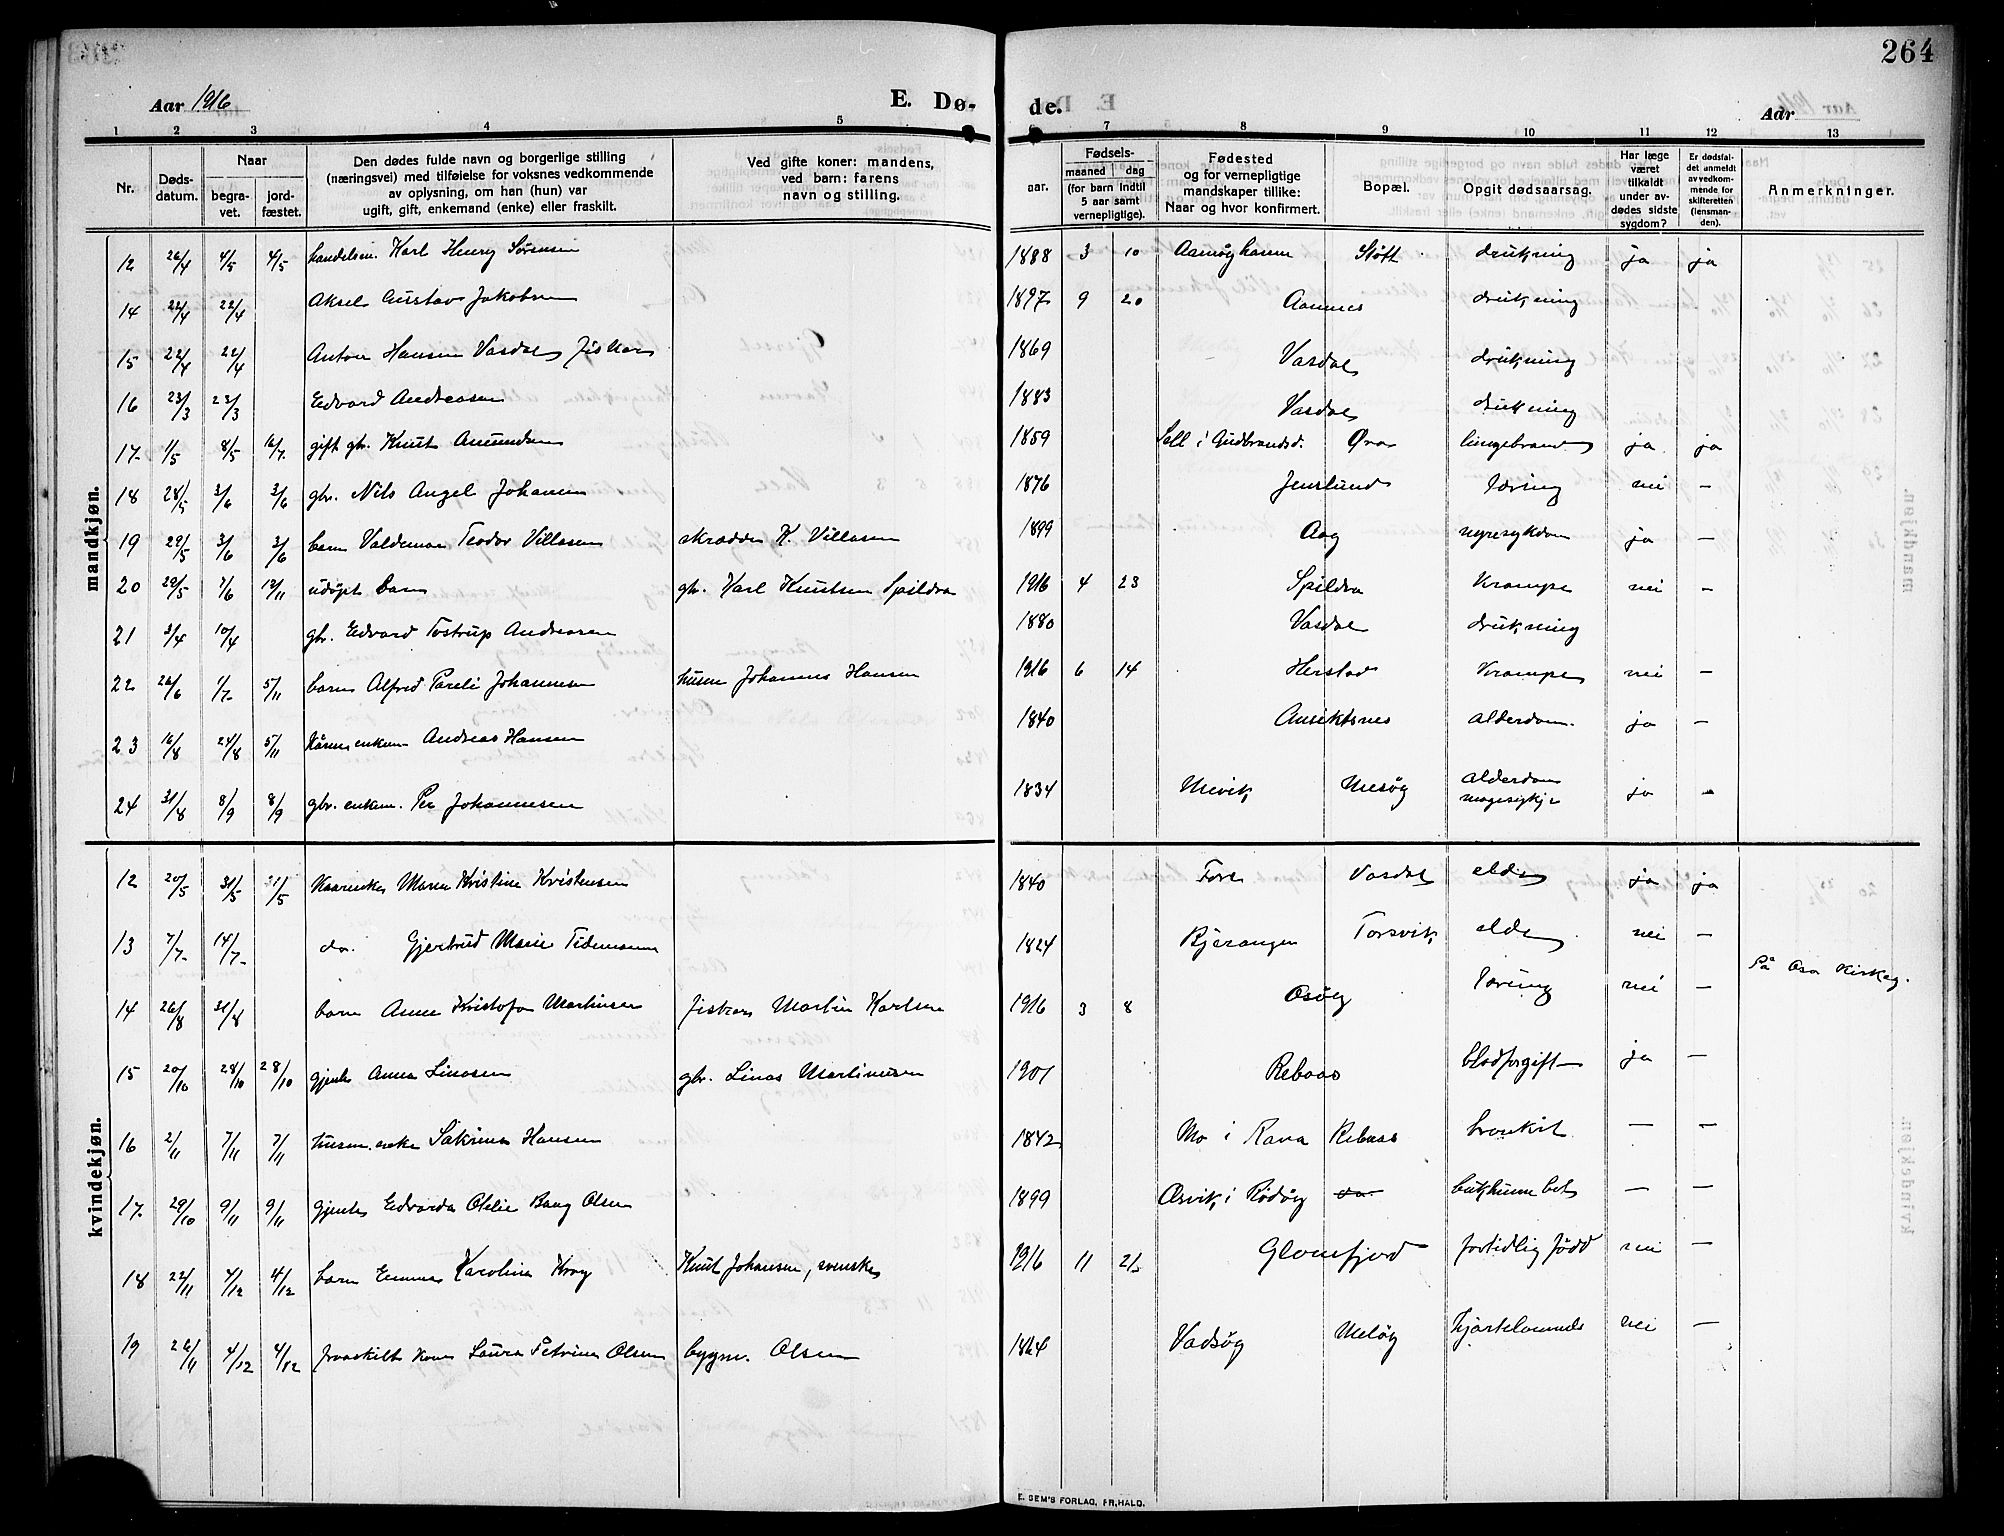 264
Aar 1916
E. Dø-
de.
Aar
1 2 3 4 5 6 7 8 9 10 11 12 13
Nr.
Døds-
datum.
Naar
begra-
vet.
jord-
fæstet.
Den dødes fulde navn og borgerlige stilling
(næringsvei) med tilføielse for voksnes vedkommende
av oplysning, om han (hun) var
ugift, gift, enkemand (enke) eller fraskilt.
Ved gifte koner: mandens,
ved barn: farens
navn og stilling.
Fødsels-
aar.
maaned
dag
(for barn indtil
5 aar samt
vernepligtige).
Fødested
og for vernepligtige
mandskaper tillike:
Naar og hvor konfirmert.
Bopæl.
Opgit dødsaarsag.
Har læge
været
tilkaldt
under av-
dødes sidste
sygdom?
Er dødsfal-
det anmeldt
av vedkom-
mende for
skifteretten
(lensman-
den).
Anmerkninger.
mandkjøn.
12 26/4 4/5 4/5 handelsm. Karl Henry Sørensen 1888 3 10 Støtt drukning ja ja
14 22/4 22/4 Aksel Gustav Jakobsen 1897 9 20 Aamnes drukning
15 22/4 22/4 Anton Hansen Vasdal, fisker 1869 Vasdal drukning
16 23/3 23/3 Edvard Andreasen 1883 Vasdal drukning
17 1/5 8/5 16/7 gift gbr. Knut Amundsen 1859 Sell i Gudbrandsd. lungebrand ja ja
18 28/5 3/6 3/6 gbr. Nils Angel Johansen 1876 Jenslund Tæring nei –
19 29/5 3/6 3/6 barn Valdemar Teodor Villasen skrædder K. Villasen 1899 Aag nyresykdom ja –
20 29/5 7/6 19/11 udøpt barn gbr. Karl Knutsen Spildra 1916 4 23 Spildra Krampe nei –
21 3/4 10/4 gbr. Edvard Tostrup Andreasen 1880 Vasdal drukning
22 26/6 1/7 5/11 barn Alfred Pareli Johannesen husm Johannes Hansen 1916 6 14 Herstad Krampe nei –
23 16/8 24/8 5/11 Kårm. enkem Andreas Hansen 1840 alderdom. ja –
24 31/8 8/9 8/9 gbr. enkem. Per Johannesen 1834 alderdom
ja –
kvindekjøn.
12 20/5 31/5 31/5 Kaarenke Maren Kristine Kristensen 1840 Fore Vasdal elde ja ja
13 7/7 14/7 do. Gjertrud Marie Tidemann 1824 Bjerangen Torsvik elde nei –
14 26/8 31/8 barn Anna Kristofa Martinsen fiskar Martin Karlsen 1916 3 8 Osøy Tæring nei – På Osa Kirkeg.
15 20/10 28/10 28/10 gjente Anna Linasen gbr. Linas Martinusen 1901 Rebaas blodforgift – ja –
16 2/11 7/11 7/11 husm. enke Sakrine Hansen 1842 Mo i Rana Rebaas bronkit – –
17 29/10 9/11 9/11 gjente Edvarda Otelie Bang Olsen 1899 Osvik i Rødøy do. bukhinne bet – –
18 22/11 4/12 4/12 barn Emma Karoline Krog Knut Johansen, svenske 1916 11 21 Glomfjord fortidlig född nei –
19 26/11 4/12 4/12 fraskilt kone Laura Petrine Olsen bygm. Olsen 1864 Vadsøy Meløy nei –
E. SEM'S FORLAG, FR.HALD.